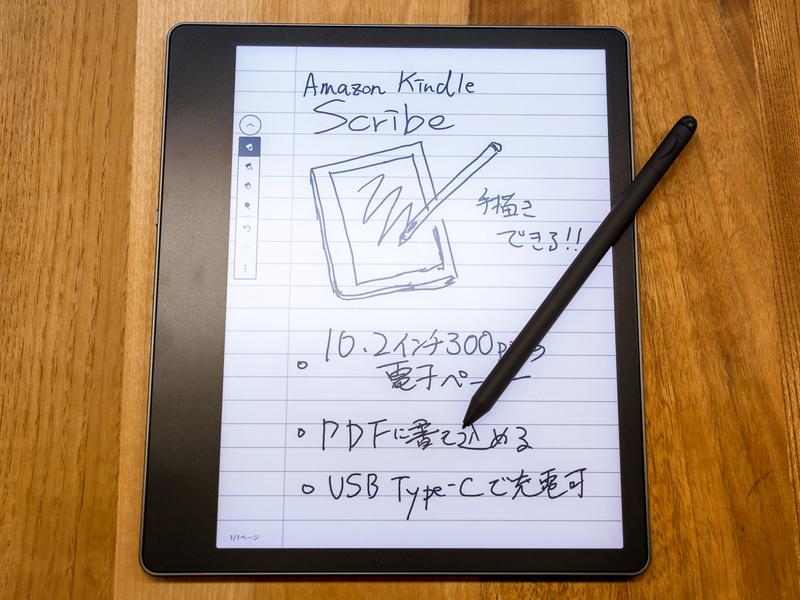 Amazon Kindle
Scribe
手描き
できる!!
10.2インチ300p の
電子ペー
PDFに書き込める
USB Type-Cで充電可
1/1ページ